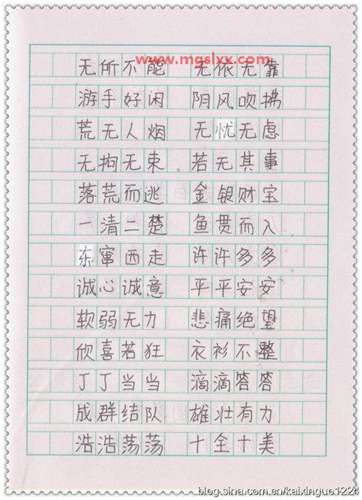 www.mgslxx.com
无所不能 无依无靠
游手好闲 阴风吹拂
荒无人烟 无忧无虑
无拘无束 若无其事
落荒而逃 金银财宝
一清二楚 鱼贯而入
东窜西走 许许多多
诚心诚意 平平安安
软弱无力 悲痛绝望
欣喜若狂 衣衫不整
丁丁当当 滴滴答答
成群结队 雄壮有力
浩浩荡荡 十全十美
blog.sina.com.cn/kaixingue1224